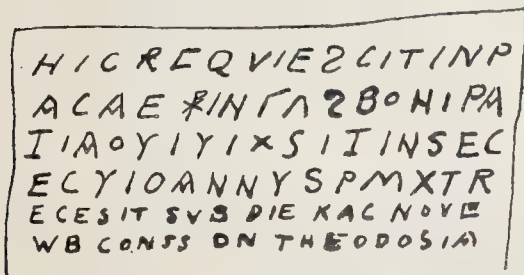 HICREQVIESCITINP
ACAE ☧INΓΛSBONIPA
TIAOYIYIXSITINSEC
ECYIOANNYSPMXTR
ECESIT SVB DIE KAC NOVE
WB CONSS DN THEODOSIA